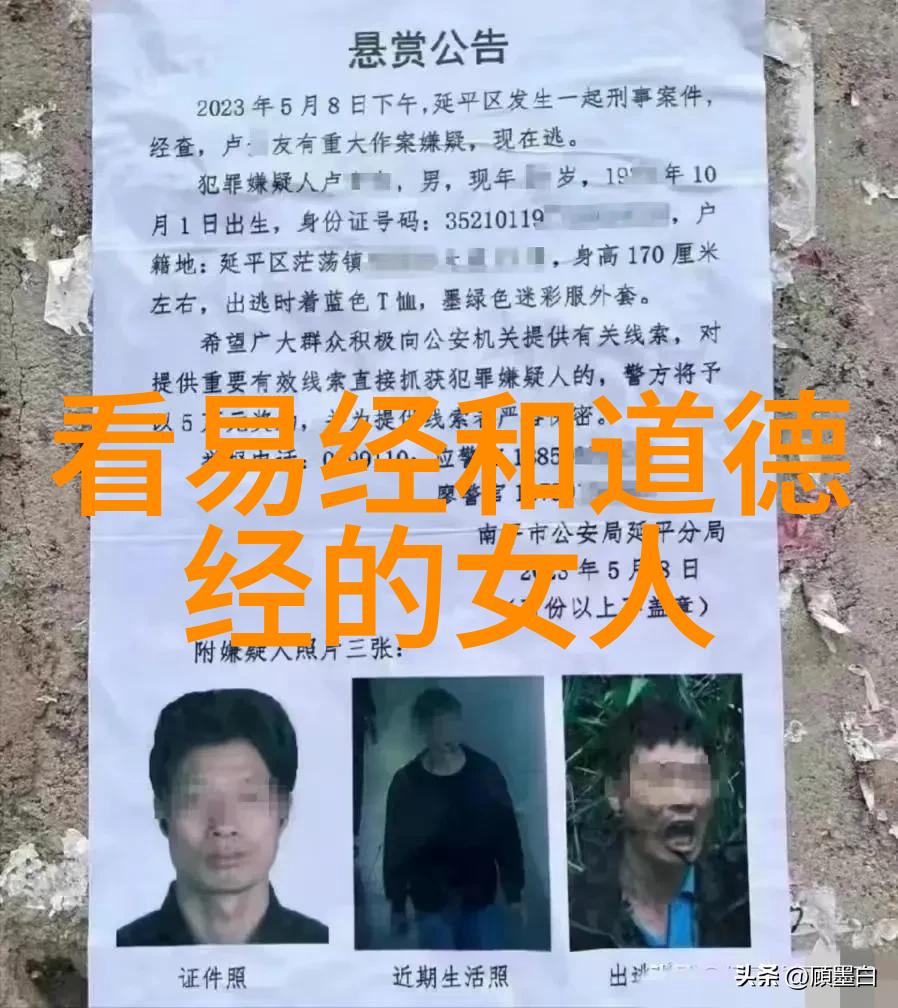 悬赏公告
2023年5月8日下午,延平区发生一起刑事案件,
经查,卢 友有重大作案嫌疑,现在逃。
犯罪嫌疑人卢 ,男,现年 岁,19 年10
月1日出生,身份证号码:35210119 ,户
籍地:延平区茫荡镇 ,身高170厘米
左右,出逃时着蓝色T恤,墨绿色迷彩服外套。
希望广大群众积极向公安机关提供有关线索,对
提供重要有效线索直接抓获犯罪嫌疑人的,警方将予
以5 线索
看易经和道德
经的女人
市公安局延平分局
年5月8日
份以上 盖章)
附嫌疑人照片三张:
证件照
近期生活照
出逃
头条 @顾墨白